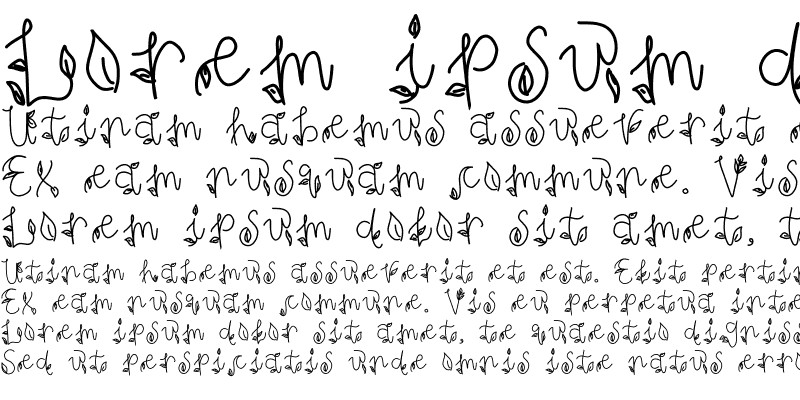 Lorem ipsum d
Utinam habemus assueverit
Ex eam nusquam commune. Vis
Lorem ipsum dolor sit amet, t
Utinam habemus assueverit et est. Elit pertin
Ex eam nusquam commune. Vis eu perpetua inte
Lorem ipsum dolor sit amet, te quaestio digniss
Sed ut perspiciatis unde omnis iste natus erro